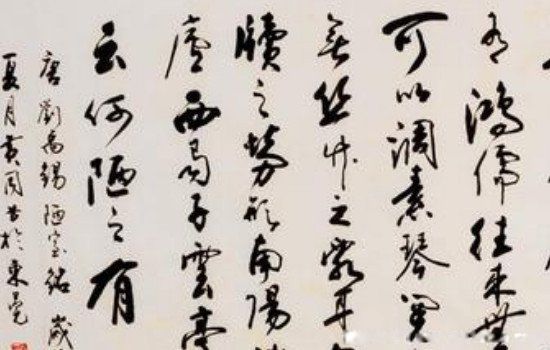 有鴻儒往来無
可以調素琴閱
無絲竹之亂耳
牘之勞形南陽
廬西蜀子雲亭
云何陋之有
唐劉禹錫陋室銘歲
夏月黄同書於東莞